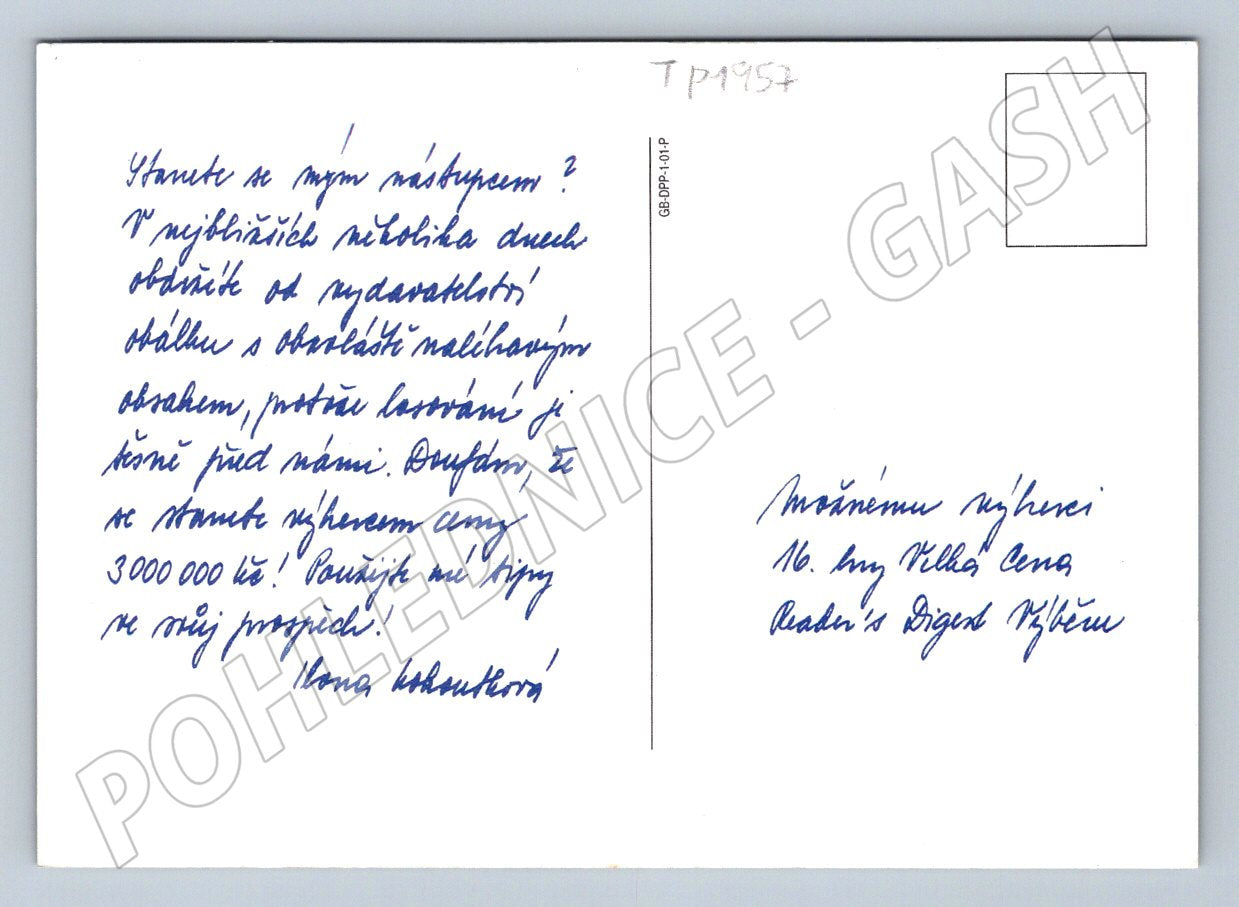 Stanete se mým nástupcem?
V nejbližších několika dnech
obdržíte od vydavatelství
obálku s obzvláště naléhavým
obsahem, protože losování je
těsně před námi. Doufám, že
se stanete výhercem ceny
3 000 000 Kč! Použijte mé tipy
ve svůj prospěch!
Ilona Kohoutková
TP1957
GB-DPP-1-01-P
Možnému výherci
16. hry Velká Cena
Reader's Digest Výběru
POHLEDNICE - GASH